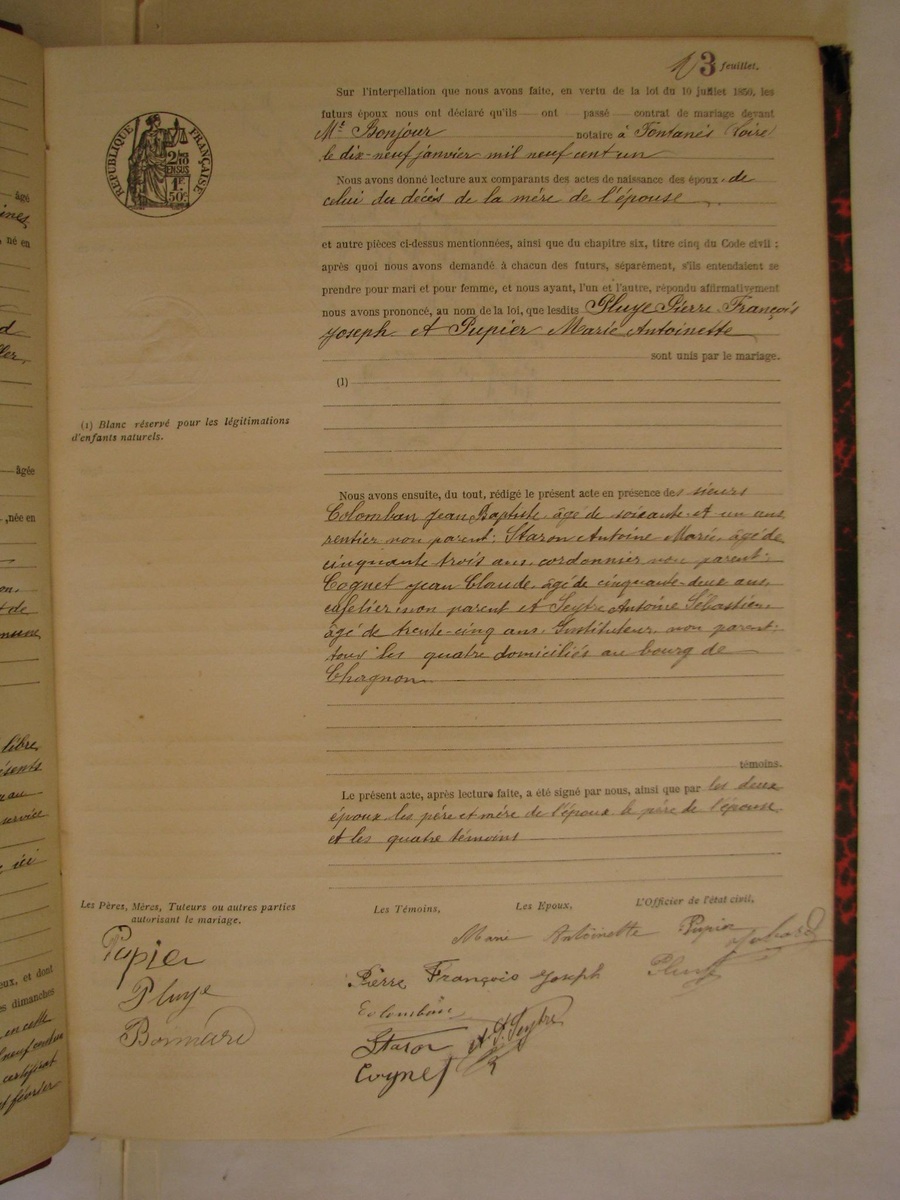 3 feuillet.
RÉPUBLIQUE FRANÇAISE
2/10 EN SUS
1F
50c
Sur l'interpellation que nous avons faite, en vertu de la loi du 10 juillet 1850, les
futurs époux nous ont déclaré qu'ils ont passé contrat de mariage devant
Me Bonjour notaire à Fontanès Loire
le dix-neuf janvier mil neuf cent un
Nous avons donné lecture aux comparants des actes de naissance des époux, de
celui du décès de la mère de l'épouse
et autre pièces ci-dessus mentionnées, ainsi que du chapitre six, titre cinq du Code civil ;
après quoi nous avons demandé à chacun des futurs, séparément, s'ils entendaient se
prendre pour mari et pour femme, et nous ayant, l'un et l'autre, répondu affirmativement
nous avons prononcé, au nom de la loi, que lesdits Pluye Pierre François
Joseph et Pupier Marie Antoinette
sont unis par le mariage.
(1)
(1) Blanc réservé pour les légitimations
d'enfants naturels.
Nous avons ensuite, du tout, rédigé le présent acte en présence des sieurs
Colomban Jean Baptiste, âgé de soixante et un ans
rentier non parent; Staron Antoine Marie, âgé de
cinquante trois ans, cordonnier non parent;
Cognet Jean Claude, âgé de cinquante-deux ans,
cafetier non parent et Seytre Antoine Sébastien,
âgé de trente-cinq ans, Instituteur, non parent;
tous les quatre domiciliés au bourg de
Chagnon
témoins.
Le présent acte, après lecture faite, a été signé par nous, ainsi que par les deux
époux les père et mère de l'époux le père de l'épouse
et les quatre témoins
Les Pères, Mères, Tuteurs ou autres parties
autorisant le mariage.
Les Témoins,
Les Epoux,
L'Officier de l'état civil,
Marie Antoinette Pupier
Pupier
Pierre François Joseph Pluye
Pluye
Colomban
Staron
A. S. Seytre
Cognet